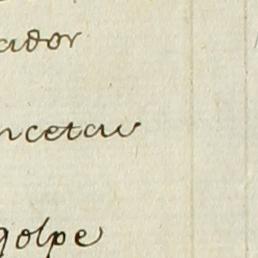 ador
ncetau
golpe